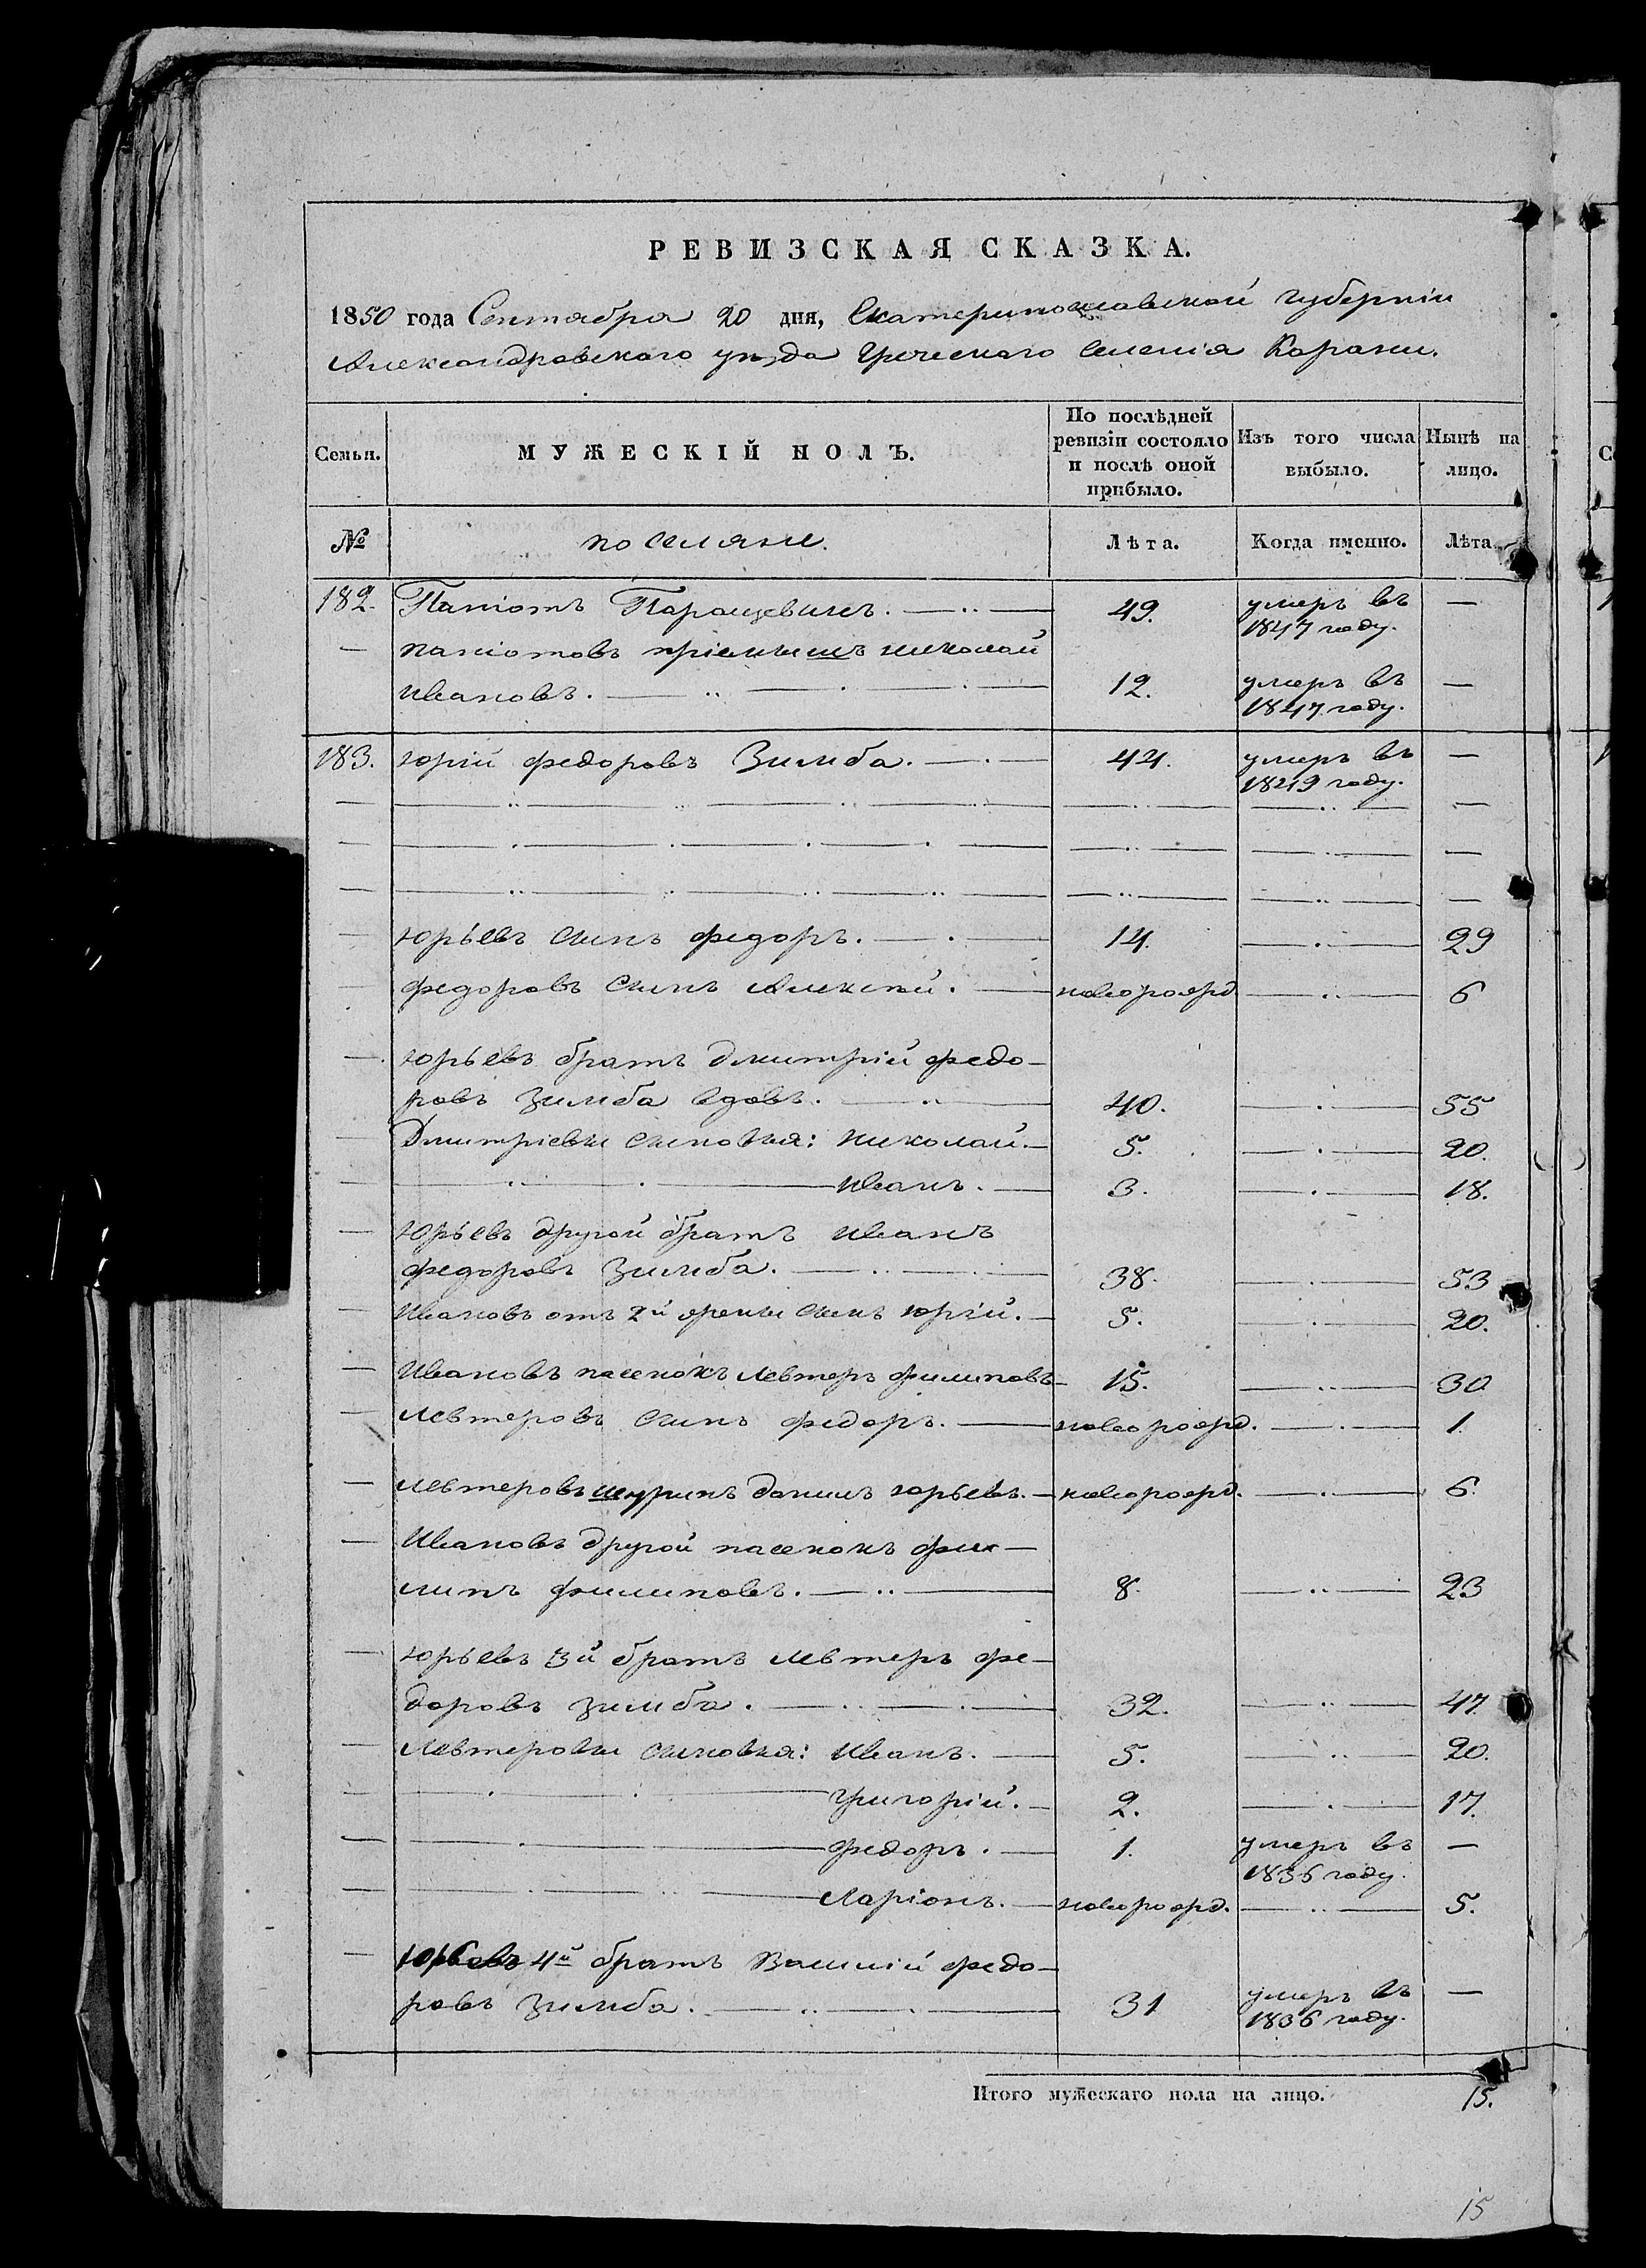 РЕВИЗСКАЯ СКАЗКА.
1850 года Сентября 20 дня, Екатеринославской губерніи
Александровскаго уѣзда Греческаго селенія Карани.
Семьи.
МУЖЕСКІЙ ПОЛЪ.
По послѣдней
ревизіи состояло
и послѣ оной
прибыло.
Изъ того числа
выбыло.
Нынѣ на
лицо.
№ поселяне. Лѣта. Когда именно. Лѣта
182. Паніотъ Паращевинъ. — 49. умеръ въ —
1847 году.
— паніотовъ пріемышъ николай
ивановъ. — 12. умеръ въ —
1847 году.
183. юрій федоровъ Зимба. — 44. умеръ въ —
1849 году.
юрьевъ сынъ федоръ. — 14. — 29
федоровъ сынъ Алексѣй. — новорожд. — 6
— юрьевъ братъ дмитрій федо-
ровъ зимба вдовъ. — 40. — 55
— Дмитріевы сыновья: николай. — 5. — 20.
— иванъ. — 3. — 18.
— юрьевъ другой братъ иванъ
федоровъ зимба. — 38. — 53
— Ивановъ отъ 2й жены сынъ юрій. — 5. — 20.
— Ивановъ пасенокъ левтеръ филиповъ — 15. — 30
— левтеровъ сынъ федоръ. — новорожд. — 1.
— левтеровъ шуринъ данилъ юрьевъ. — новорожд. — 6.
— Ивановъ другой пасенокъ фи-
липъ филиповъ. — 8. — 23
— юрьевъ 3й братъ левтеръ фе-
доровъ зимба. — 32. — 47
— Левтеровы сыновья: иванъ. — 5. — 20.
— григорій. — 2. — 17.
— федоръ. — 1. умеръ въ —
1836 году.
— Ларіонъ. — новорожд. — 5.
— юрьевъ 4й братъ Василій федо-
ровъ зимба. — 31 умеръ въ —
1836 году.
Итого мужескаго пола на лицо. 15.
15